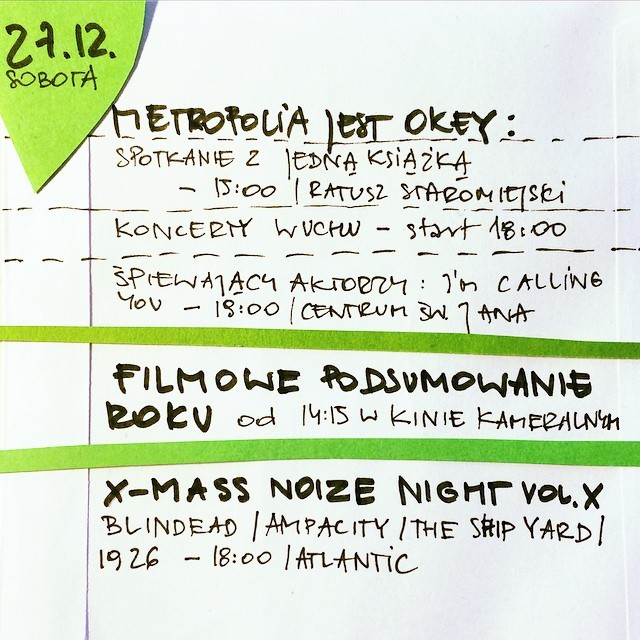 27.12.
SOBOTA
METROPOLIA JEST OKEY:
SPOTKANIE Z JEDNĄ KSIĄŻKĄ
- 15:00 / RATUSZ STAROMIEJSKI
KONCERTY W UCHU - start 18:00
ŚPIEWAJĄCY AKTORZY: I'm CALLING
YOU - 19:00 / CENTRUM ŚW. JANA
FILMOWE PODSUMOWANIE
ROKU od 14:15 W KINIE KAMERALNYM
X-MASS NOIZE NIGHT VOL. X
BLINDEAD / AMPACITY / THE SHIPYARD /
1926 - 18:00 / ATLANTIC